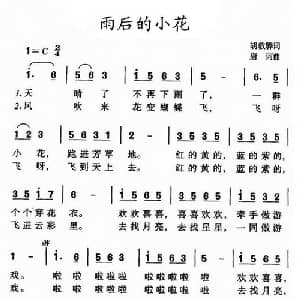 雨后的小花
1=C 2/4
词
曲
i. 6 | 5 6 3 | i 5 6 3 | 1 - | 6. 5
1.天 晴 了 不再下雨了， 一群
2.风 吹 来 花空蝴蝶飞， 飞呀
小花， 跑进芳草 地。 红的黄的， 蓝的紫的，
飞呀， 飞到天上 去。 红的黄的， 蓝的紫的，
1 5 3 5 | 1 2 3 | 1 - | i 5 6 5 | i 5 6 5
个个穿花衣。 欢欢喜喜， 喜喜欢欢， 牵手做游
飞进云彩里。 去找月亮， 去找星星， 一同做游
戏。 啦 啦 啦啦啦 啦 啦啦啦啦 去找
戏。 啦 啦 啦啦啦 啦 啦啦啦啦 去找月亮，